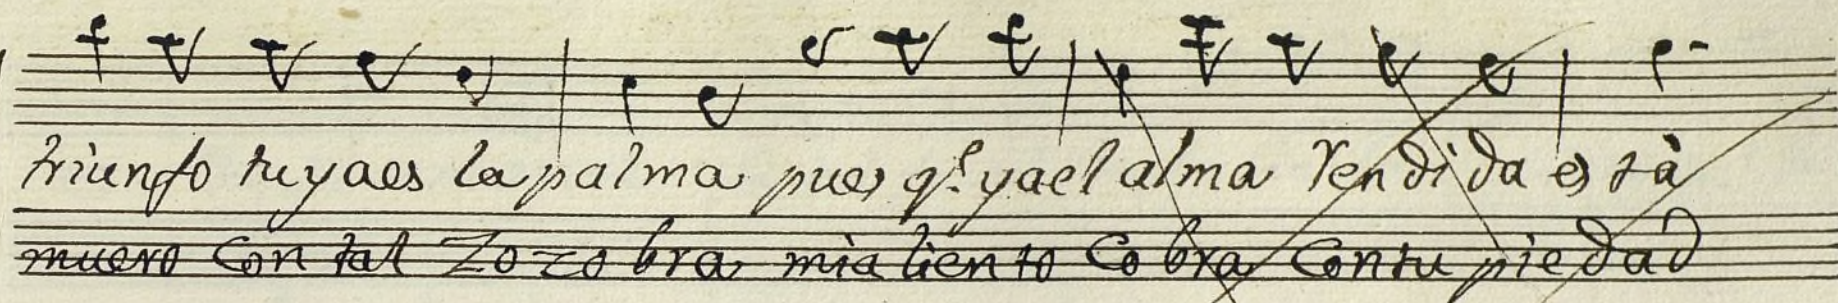 triunfo tuyaes la palma pues q.e yael alma Rendida està
muero Con tal Zozobra mialiento Cobra Contu piedad